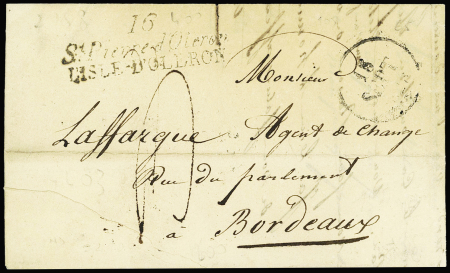 15
St Pierre d'Oleron
L'ISLE-D'OLERON
Monsieur
Laffargue Agent de Change
Rue du parlement
à Bordeaux